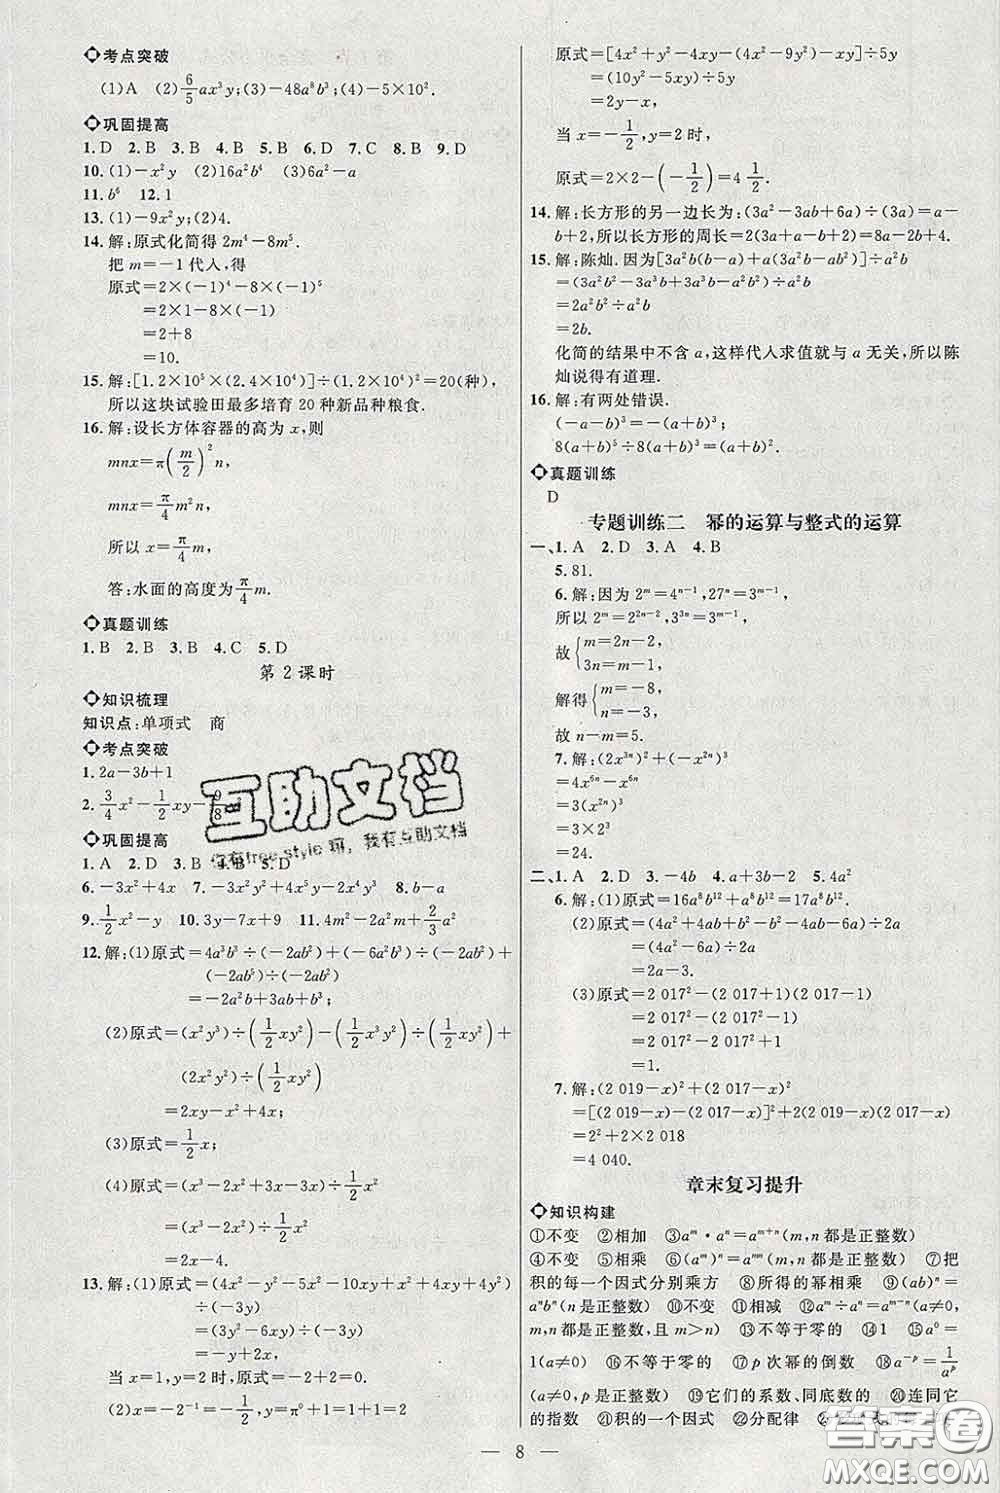 考点突破
(1)A (2)6/5ax³y;(3)-48a⁸b³;(4)-5×10².
巩固提高
1.D 2.B 3.B 4.B 5.D 6.D 7.C 8.B 9.D
10.(1)-x²y (2)16a²b⁴ (3)6a²-a
11.b⁶ 12.1
13.(1)-9x²y;(2)4.
14.解:原式化简得2m⁴-8m⁵.
把m=-1代入,得
原式=2×(-1)⁴-8×(-1)⁵
=2×1-8×(-1)
=2+8
=10.
15.解:[1.2×10⁵×(2.4×10⁴)]÷(1.2×10⁴)²=20(种),
所以这块试验田最多培育20种新品种粮食.
16.解:设长方体容器的高为x,则
mnx=π(m/2)²n,
mnx=π/4m²n,
所以x=π/4m,
答:水面的高度为π/4m.
真题训练
1.B 2.B 3.B 4.C 5.D
第2课时
知识梳理
知识点:单项式 商
考点突破
1.2a-3b+1
2.3/4x²-1/2xy-9/8
巩固提高
1.A 2.D 3.B 4.B 5.D
6.-3x²+4x 7.-3x²yz+5xyz-2x⁴y³ 8.b-a
9.1/2x²-y 10.3y-7x+9 11.4m²-2a²m+2/3a²
12.解:(1)原式=4a³b³÷(-2ab²)+(-6a²b³)÷(-2ab²)+
(-2ab⁵)÷(-2ab²)
=-2a²b+3ab+b³;
(2)原式=(x²y³)÷(1/2xy²)-(1/2x³y²)÷(1/2xy²)+
(2x²y²)÷(1/2xy²)
=2xy-x²+4x;
(3)原式=1/2x;
(4)原式=(x³-2x²+2x²-4x+4x-2x²)÷1/2x²
=(x³-2x²)÷1/2x²
=2x-4.
13.解:(1)原式=(4x²-y²-5x²-10xy+x²+4xy+4y²)
÷(-3y)
=(3y²-6xy)÷(-3y)
=-y+2x.
当x=1,y=2时,原式=-2+2=0.
(2)x=-2⁻¹=-1/2,y=π⁰+1=1+1=2
原式=[4x²+y²-4xy-(4x²-9y²)-xy]÷5y
=(10y²-5xy)÷5y
=2y-x,
当x=-1/2,y=2时,
原式=2×2-(-1/2)=4 1/2.
14.解:长方形的另一边长为:(3a²-3ab+6a)÷(3a)=a-
b+2,所以长方形的周长=2(3a+a-b+2)=8a-2b+4.
15.解:陈灿.因为[3a²b(b-a)+a(3a²b-ab²)]÷a²b
=(3a²b²-3a³b+3a³b-a²b²)÷a²b
=2a²b²÷a²b
=2b.
化简的结果中不含a,这样代入求值就与a无关,所以陈
灿说得有道理.
16.解:有两处错误.
(-a-b)³=-(a+b)³;
8(a+b)⁵÷8(a+b)³=(a+b)².
真题训练
D
专题训练二 幂的运算与整式的运算
一、1.A 2.D 3.A 4.B
5.81.
6.解:因为2ᵐ=4ⁿ⁻¹,27ⁿ=3ᵐ⁻¹,
所以2ᵐ=2²ⁿ⁻²,3³ⁿ=3ᵐ⁻¹,
故{m=2n-2,
3n=m-1,
解得{m=-8,
n=-3,
故n-m=5.
7.解:(2x³ⁿ)²-(x²ⁿ)³
=4x⁶ⁿ-x⁶ⁿ
=3(x²ⁿ)³
=3×2³
=24.
二、1.A 2.D 3.-4b 4.a+3b-2 5.4a²
6.解:(1)原式=16a⁸b¹²+a⁸b¹²=17a⁸b¹².
(2)原式=(4a²+4ab+b²-4ab-b²-6a)÷2a
=(4a²-6a)÷2a
=2a-3.
(3)原式=2 017²-(2 017+1)(2 017-1)
=2 017²-(2 017²-1)
=2 017²-2 017²+1
=1.
7.解:(2 019-x)²+(2 017-x)²
=[(2 019-x)-(2 017-x)]²+2(2 019-x)(2 017-x)
=2²+2×2 018
=4 040.
章末复习提升
知识构建
①不变 ②相加 ③aᵐ·aⁿ=aᵐ⁺ⁿ(m,n都是正整数)
④不变 ⑤相乘 ⑥(aᵐ)ⁿ=aᵐⁿ(m,n都是正整数) ⑦把
积的每一个因式分别乘方 ⑧所得的幂相乘 ⑨(ab)ⁿ=
aⁿbⁿ(n是正整数) ⑩不变 ⑪相减 ⑫aᵐ÷aⁿ=aᵐ⁻ⁿ(a≠0,
m,n都是正整数,且m>n) ⑬不等于零的 ⑭1 ⑮a⁰=
1(a≠0) ⑯不等于零的 ⑰p次幂的倒数 ⑱a⁻ᵖ=1/aᵖ
(a≠0,p是正整数) ⑲它们的系数、同底数的 ⑳连同它
的指数 ㉑积的一个因式 ㉒分配律
8
互助文档
你有free style嘛,我有互助文档
答案卷
MXQE.COM